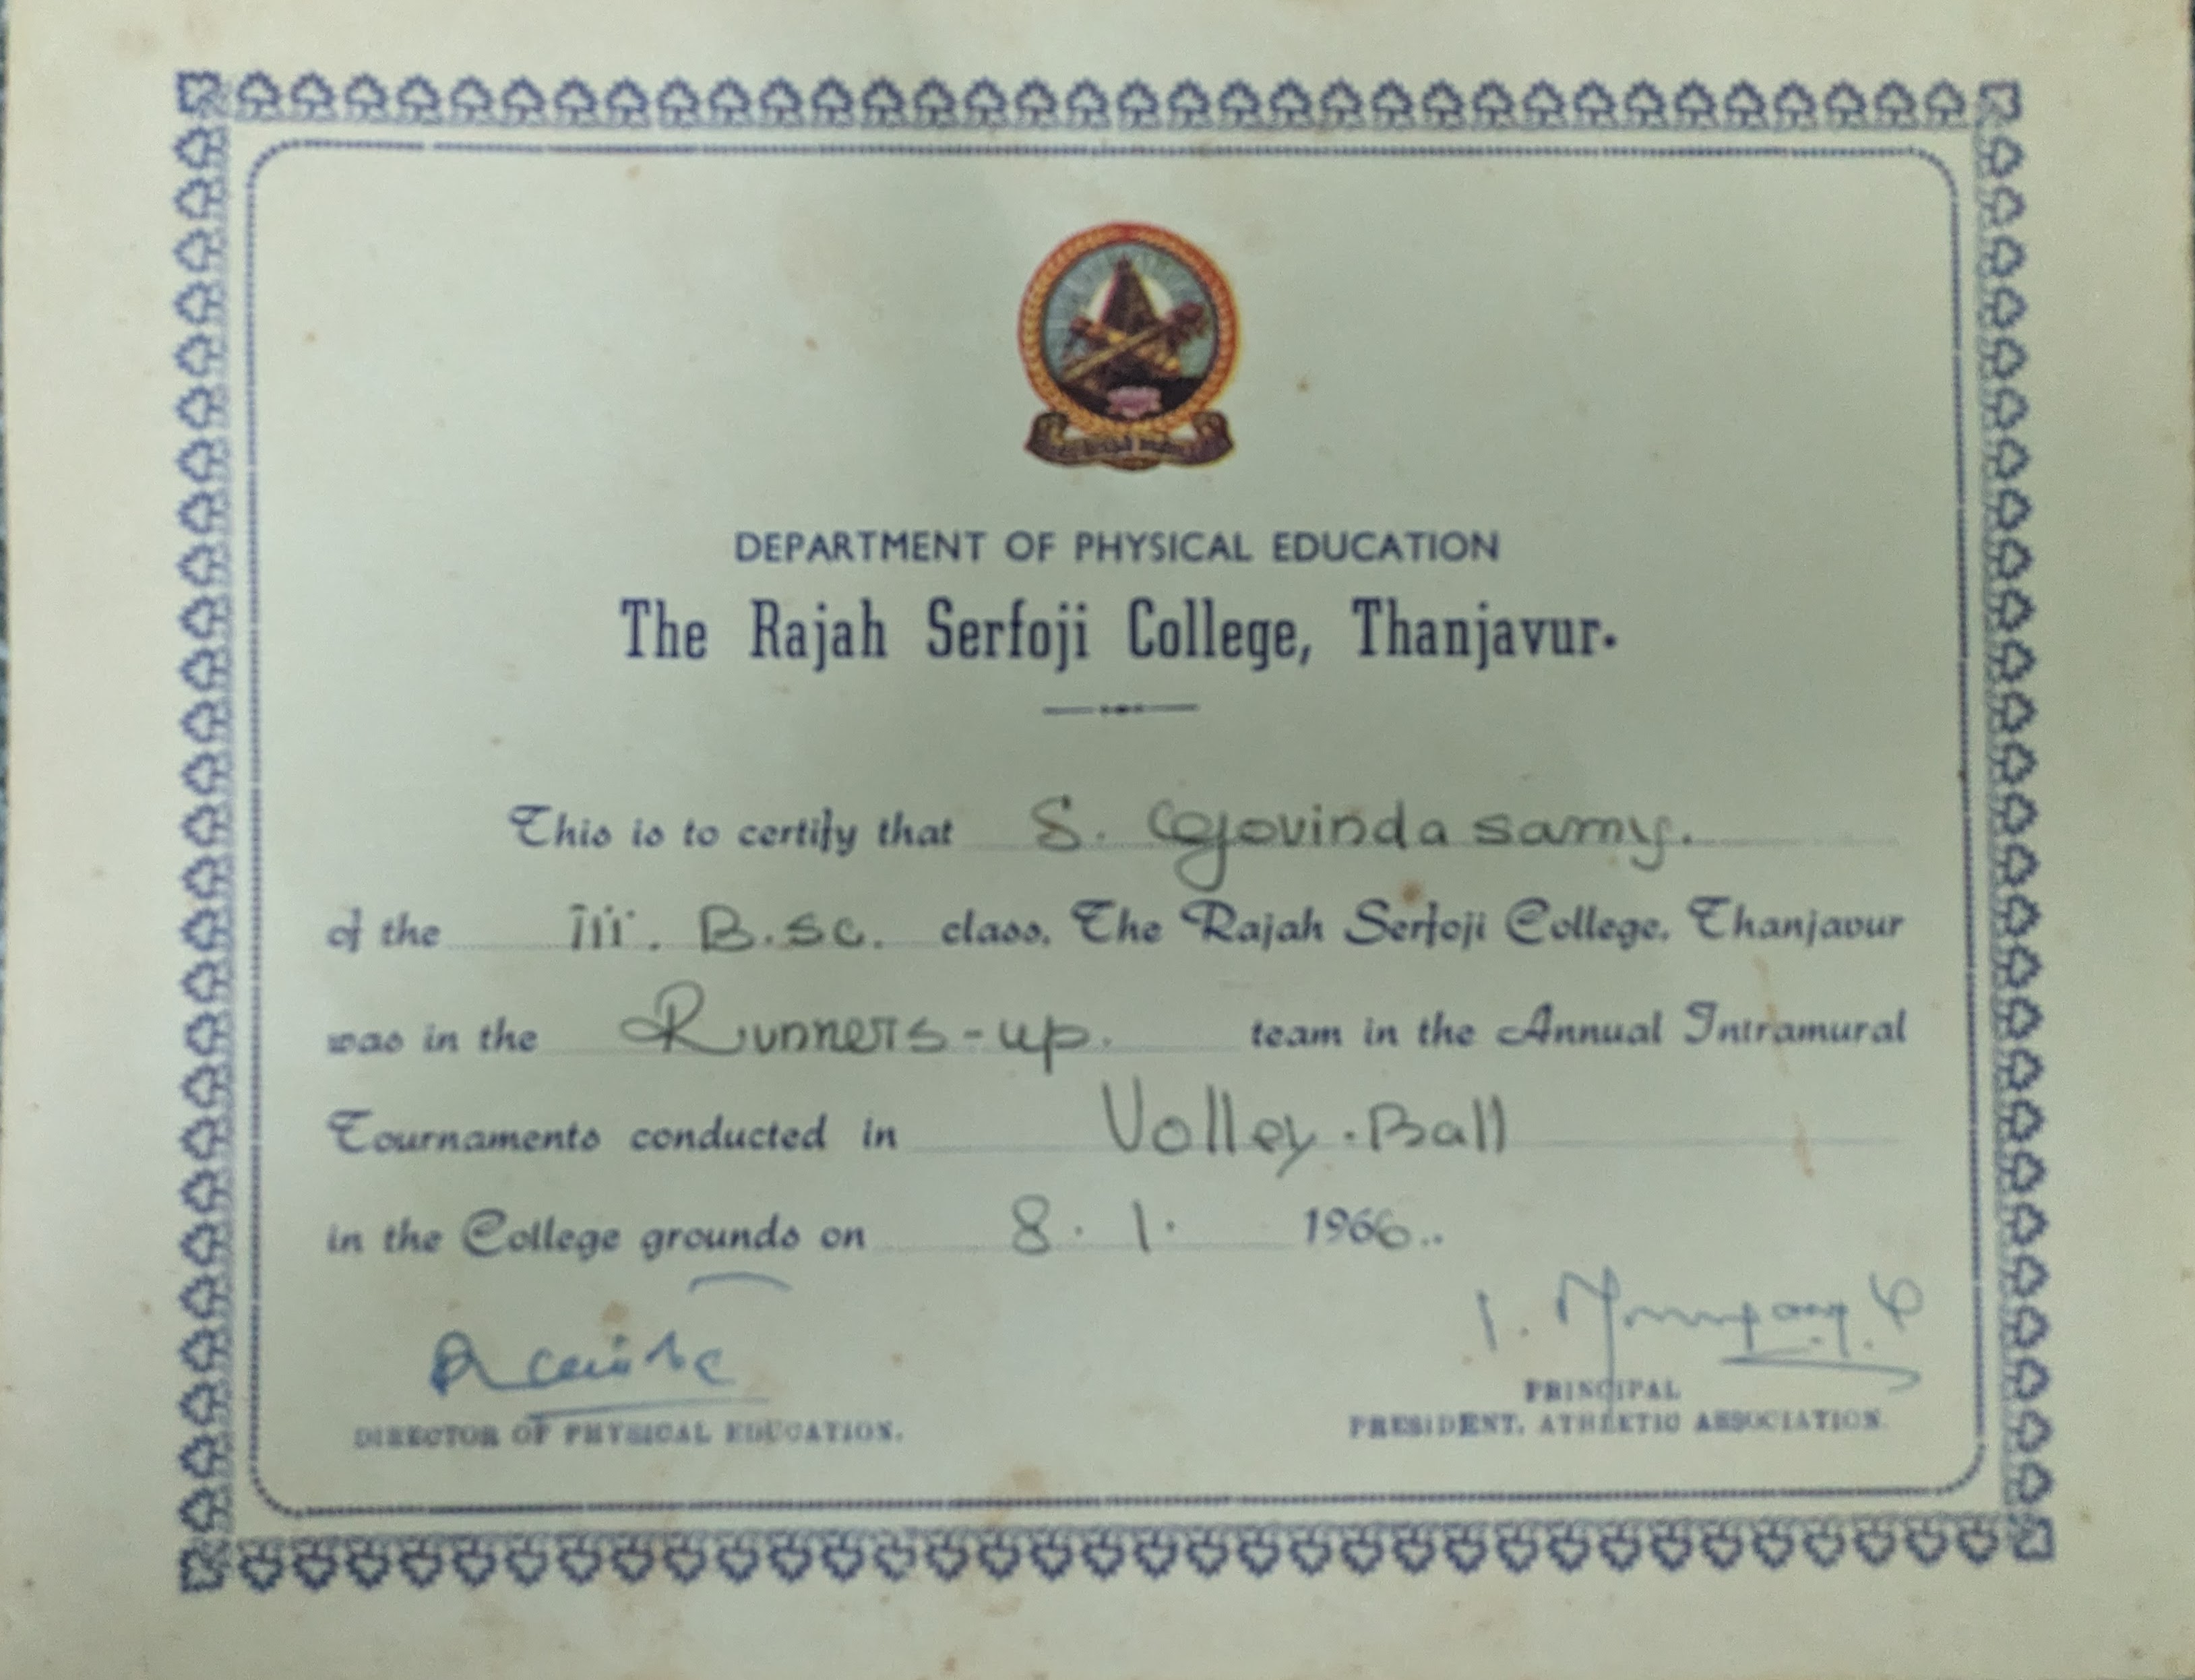 DEPARTMENT OF PHYSICAL EDUCATION
The Rajah Serfoji College, Thanjavur.
This is to certify that S. Govindasamy.
of the III. B.sc. class, The Rajah Serfoji College, Thanjavur
was in the Runners-up. team in the Annual Intramural
Tournaments conducted in Volley.Ball
in the College grounds on 8.1. 1966..
DIRECTOR OF PHYSICAL EDUCATION.
PRINCIPAL
PRESIDENT, ATHLETIC ASSOCIATION.